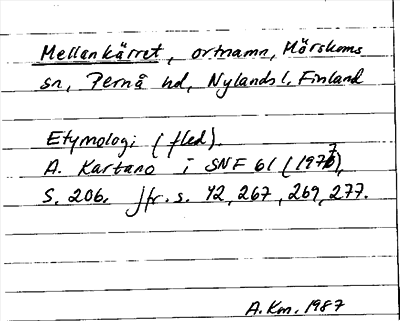 Mellankärret, ortnamn, Mörskoms
sn, Pernå hd, Nylands l, Finland
Etymologi (fled).
A. Kartano i SNF 61 (1977),
s. 206. Jfr. s. 42, 267, 269, 277.
A.Km. 1987